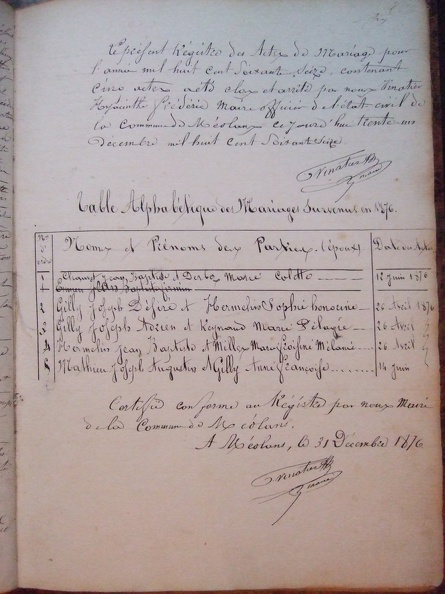 Le présent Registre des Actes de Mariage pour
l'année mil huit cent soixante seize, contenant
cinq actes a été clos et arrêté par nous Vinatier
Hyacinthe Frédéric Maire officier de l'état civil de
la commune de Méolans ce jourd'hui trente un
decembre mil huit cent soixante seize
Vinatier
maire
Table Alphabétique des Mariages Survenus en 1876.
Noms et Prénoms des Parties (époux)
1 Jean Baptiste et Marie 12 Juin 1876
2 Gilly Joseph Désiré et Hermelin Sophie honorine 26 Avril 1876
3 Gilly Joseph Adrien et Reynaud Marie Pélagie 26 Avril
4 Hermelin Jean Baptiste et Marie Mélanie 26 Avril
5 Mathieu Joseph Augustin et Gilly Anne Françoise 14 Juin
Certifié conforme au Régistre par nous Maire
de la Commune de Méolans.
A Méolans, le 31 Décembre 1876
Vinatier
maire